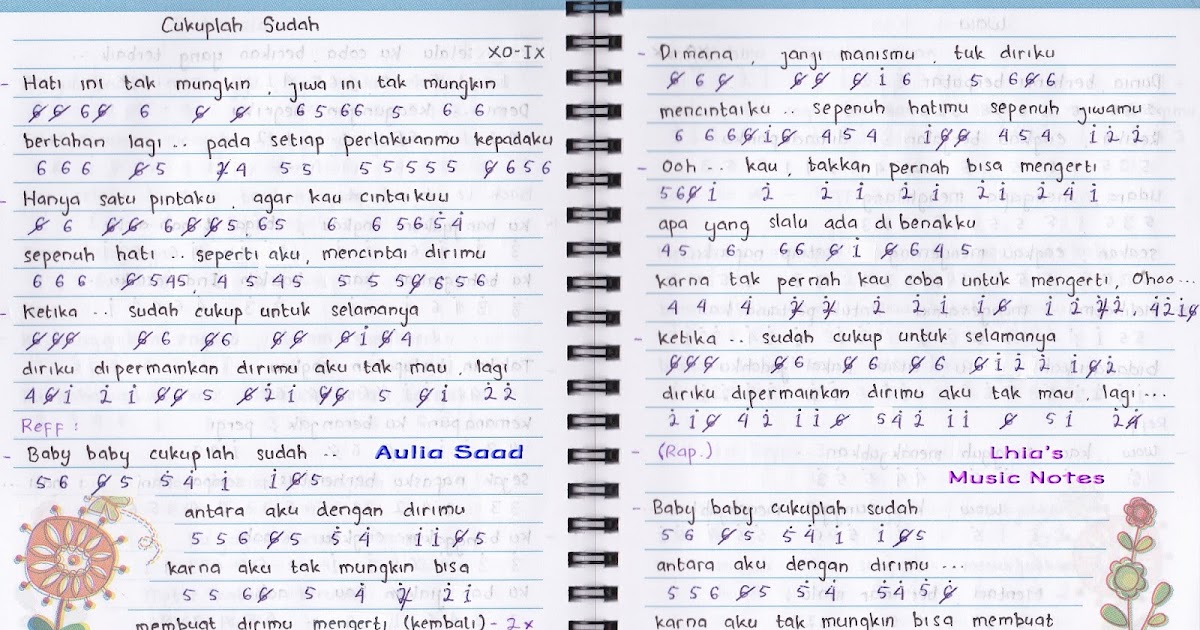 Cukuplah Sudah
XO-IX
- Hati ini tak mungkin, jiwa ini tak mungkin
6̸ 6̸ 6 6̸ 6 6̸ 6̸ 6 5 6 6 5 6 6
bertahan lagi .. pada setiap perlakuanmu kepadaku
6 6 6 6̸ 5 2̸ 4 5 5 5 5 5 5 5 6̸ 6 5 6
- Hanya satu pintaku, agar kau cintaikuu
6̸ 6 6̸ 6̸ 6̸ 6̸ 5 6 5 6 6 5 6 5̇ 4̇
sepenuh hati .. seperti aku, mencintai dirimu
6 6 6 6̸ 5 4 5 4 5 4 5 5 5 5 6̸ 6 5 6
- Ketika .. sudah cukup untuk selamanya
6̸ 6̸ 6̸ 6̸ 6 6̸ 6 6̸ 6̸ 6̸ 1̇ 6̸ 4
diriku dipermainkan dirimu aku tak mau, lagi
4 6̸ 1̇ 2̇ 1̇ 6̸ 6̸ 5 6̸ 2̇ 1̇ 6̸ 6̸ 5 6̸ 1̇ 2̇ 2̇
Reff :
- Baby baby cukuplah sudah ..
Aulia Saad
5 6 6̸ 5 5̇ 4̇ 1̇ 1̇ 6̸ 5
antara aku dengan dirimu
5 5 6 6̸ 5 5̇ 4̇ 1̇ 1̇ 6̸ 5
karna aku tak mungkin bisa
5 5 6 6̸ 5 4̇ 2̸̇ 2̇ 1̇
membuat dirimu mengerti (kembali) - 2x
- Dimana, janji manismu, tuk diriku
6̸ 6 6̸ 6̸ 6̸ 6̸ 1̇ 6 5 6 6̸ 6
mencintaiku .. sepenuh hatimu sepenuh jiwamu
6 6 6 6̸ 1̇ 6̸ 4 5 4 1̇ 6̸ 6̸ 4 5 4 1̇ 2̇ 2̇
- Ooh .. kau, takkan pernah bisa mengerti
5 6 6̸ 1̇ 2̇ 2̇ 1̇ 2̇ 1̇ 2̇ 1̇ 2̇ 4̇ 1̇
apa yang slalu ada dibenakku
4 5 6 6 6 6̸ 1̇ 6̸ 6 4 5
karna tak pernah kau coba untuk mengerti, Ohoo ...
4 4 4 2̸̇ 2̸̇ 2̇ 2̇ 1̇ 1̇ 6̸ 1̇ 2̇ 2̸̇ 2̇ 4̇ 2̇ 1̇ 6̸
- ketika .. sudah cukup untuk selamanya
6̸ 6̸ 6̸ 6̸ 6 6̸ 6 6̸ 6 6̸ 1̇ 2̇ 2̇ 1̇ 6̸ 2̇
diriku dipermainkan dirimu aku tak mau, lagi ...
2̇ 1̇ 6̸ 4̇ 2̇ 1̇ 1̇ 6̸ 5̇ 4̇ 2̇ 1̇ 1̇ 6̸ 5 1̇ 2̇ 4̸̇
- (Rap.)
Lhia's
Music Notes
- Baby baby cukuplah sudah
5 6 6̸ 5 5̇ 4̇ 1̇ 1̇ 6̸ 5
antara aku dengan dirimu ...
5 5 6 6̸ 5 5̇ 4̇ 5̇ 4̇ 5̇ 6̸
karna aku tak mungkin bisa membuat